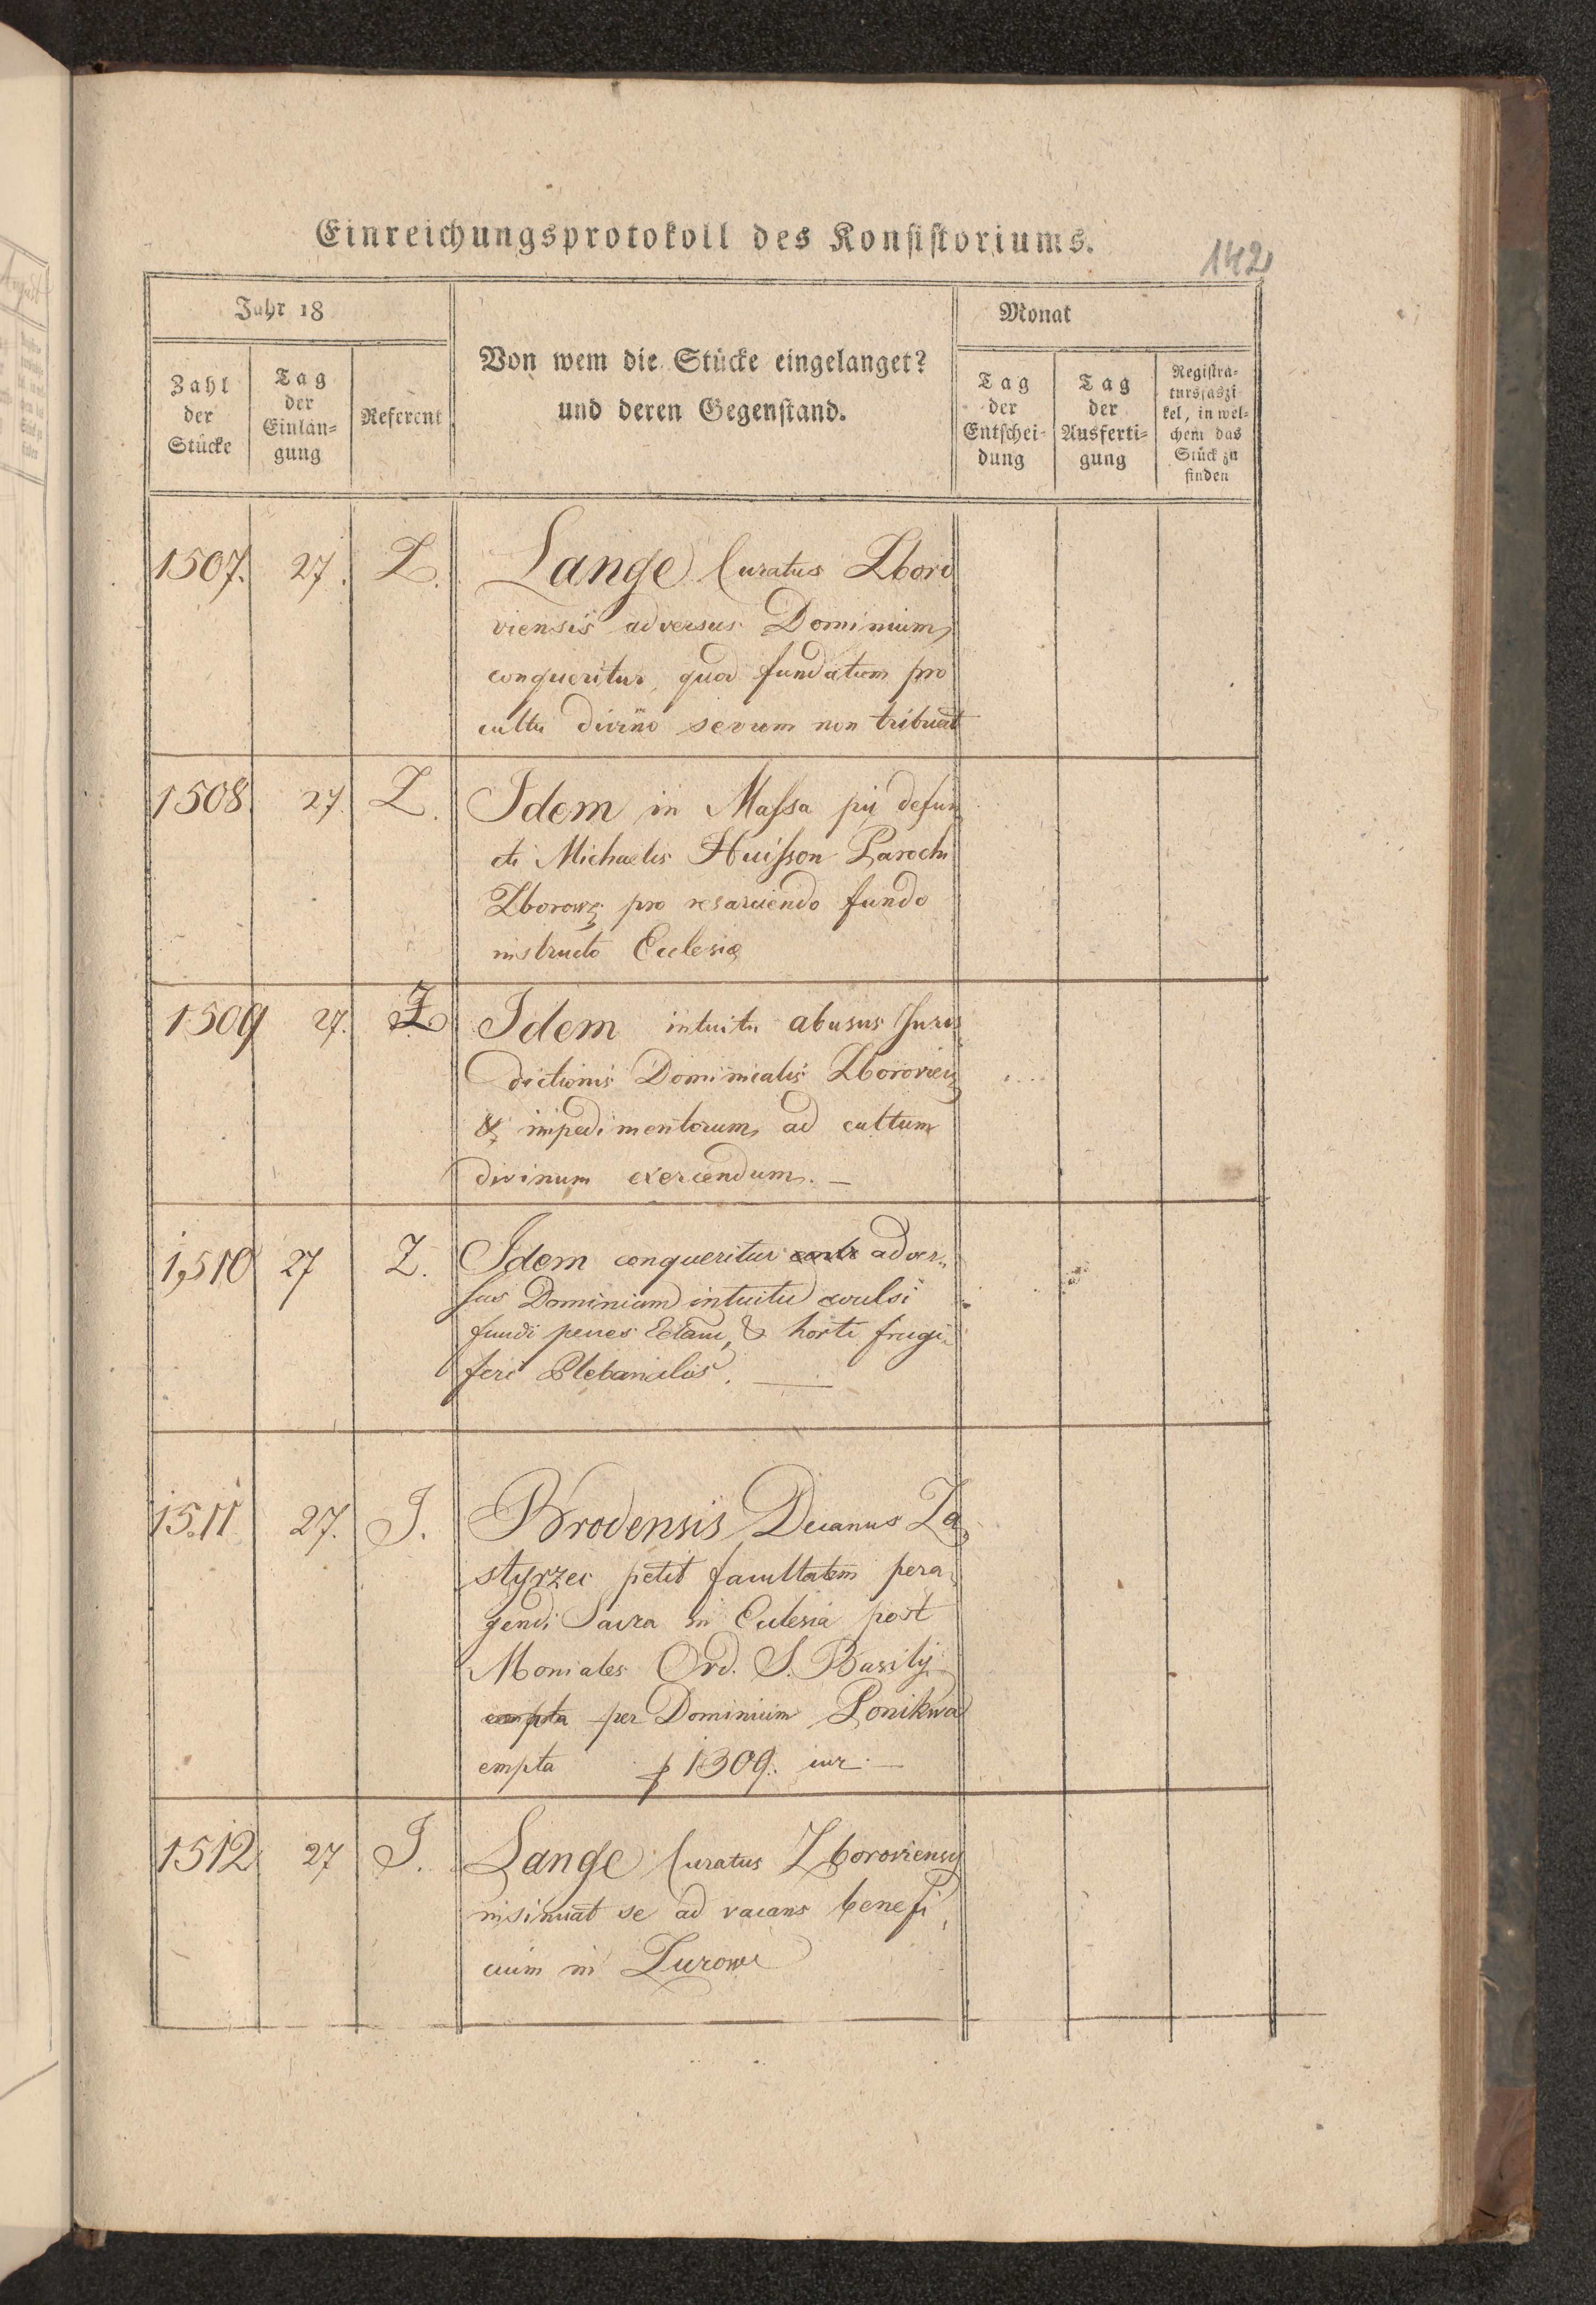 Einreichungsprotokoll des Konsistoriums.
142
Jahr 18
Monat
Zahl der Stücke
Tag der Einlan-gung
Referent
Von wem die Stücke eingelanget?
und deren Gegenstand.
Tag der Entschei-dung
Tag der Ausferti-gung
Registra-tursfaszi-kel, in wel-chem das Stück zu finden
1507. 27. Z. Lange Curatus Zboro
viensis adversus Dominium
conqueritur, quod fundatum pro
cultu divino sevum non tribuat
1508. 27. Z. Idem in Massa pij defun
cti Michaelis Huisson Parochi
Zborow. pro resarciendo fundo
instructo Ecclesiæ
1509 27. Z. Idem intuitu abusus Juris
dictionis Dominicalis Zboroviens
& impedimentorum ad cultum
divinum exercendum. —
1,510 27 Z. Idem conqueritur adver„
sus Dominium intuitu avulsi
fundi penes Eclam, & horti frugi„
feri Plebanalis. —
1511 27. J. Brodensis Decanus Za„
styrzec petit facultatem pera„
gendi Sacra in Eclesia post
Moniales Ord. S. Basilij
empta per Dominium Ponikwa
empta p 1309. cur. —
1512 27 J. Lange Curatus Zboroviensis
insinuat se ad vacans benefi„
cium in Zurow